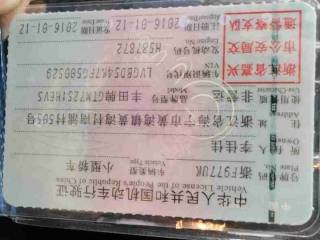 中华人民共和国机动车行驶证
Vehicle License of the People's Republic of China
号牌号码 浙F977UK 车辆类型 小型轿车
Plate No. Vehicle Type
所有人 李佳佳
Owner
住址 浙江省海宁市黄湾镇黄湾村505号
Address
使用性质 非营运 品牌型号 丰田牌GTM7251HEVS
Use Character Model
浙江省嘉兴
市公安局交
通警察支队
车辆识别代号 LVGBD54K7FG500529
VIN
发动机号码 H587872
Engine No.
注册日期 2016-01-12 发证日期 2016-01-12
Register Date Issue Date